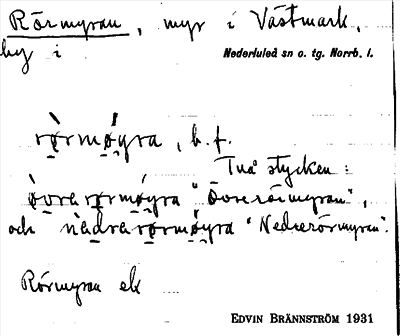 Rörmyran, myr i Västmark,
by i Nederluleå sn o. tg. Norrb. l.
rø̀rmǿyra, b. f.
Två stycken:
ø̀vrarørmǿyra "Övrerörmyran",
och nàdrarørmǿyra "Nedrerörmyran".
Rörmyran ek
EDVIN BRÄNNSTRÖM 1931